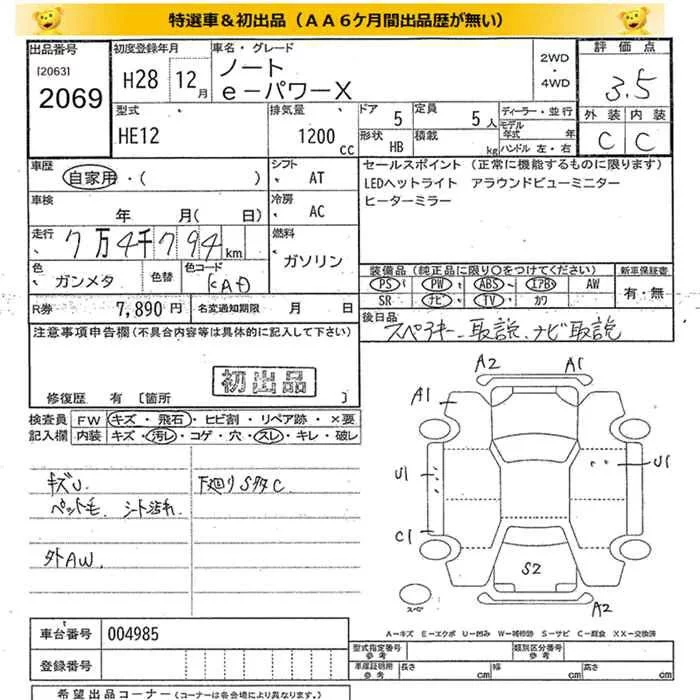 特選車＆初出品（ＡＡ６ケ月間出品歴が無い）
出品番号 初度登録年月 車名・グレード 2WD・4WD 評価点
[2063] 2069 H28 12月 ノート
e－パワーX 3.5
型式 排気量 ドア 定員 ディーラー・並行 外装 内装
HE12 1200cc 5 5人 モデル年式 年
形状 HB 積載 kg ハンドル 左・右 C C
車歴 シフト セールスポイント（正常に機能するものに限ります）
自家用・( ) AT LEDヘットライト アラウンドビューミニター
車検 冷房 ヒーターミラー
年 月( 日) AC
走行 7万4千794km 燃料
ガソリン
色 ガンメタ 色替 色コード 装備品（純正品に限り○をつけてください） 新車保証書
PS PW ABS エアB AW 有・無
SR ナビ TV カワ
R券 7,890円 名変通知期限 月 日 後日品
スペアキー、取説、ナビ取説
注意事項申告欄(不具合内容等は具体的に記入して下さい)
初出品
修復歴 有 [箇所 ]
検査員 FW キズ・飛石・ヒビ割・リペア跡・×要
記入欄 内装 キズ・汚レ・コゲ・穴・スレ・キレ・破レ
キズU 下廻りSタタC
ペット毛 シート汚れ
外AW
A2 A1
A1
U1 U1
C1
S2
スペア A2
車台番号 004985
A－キズ E－エクボ U－凹み W－補修跡 S－サビ C－腐食 XX－交換済
登録番号 型式指定番号 参考 類別区分番号 参考
車庫証明用 参考 長さ cm 幅 cm 高さ cm
希望出品コーナー（コーナーは各会場により異なります。）